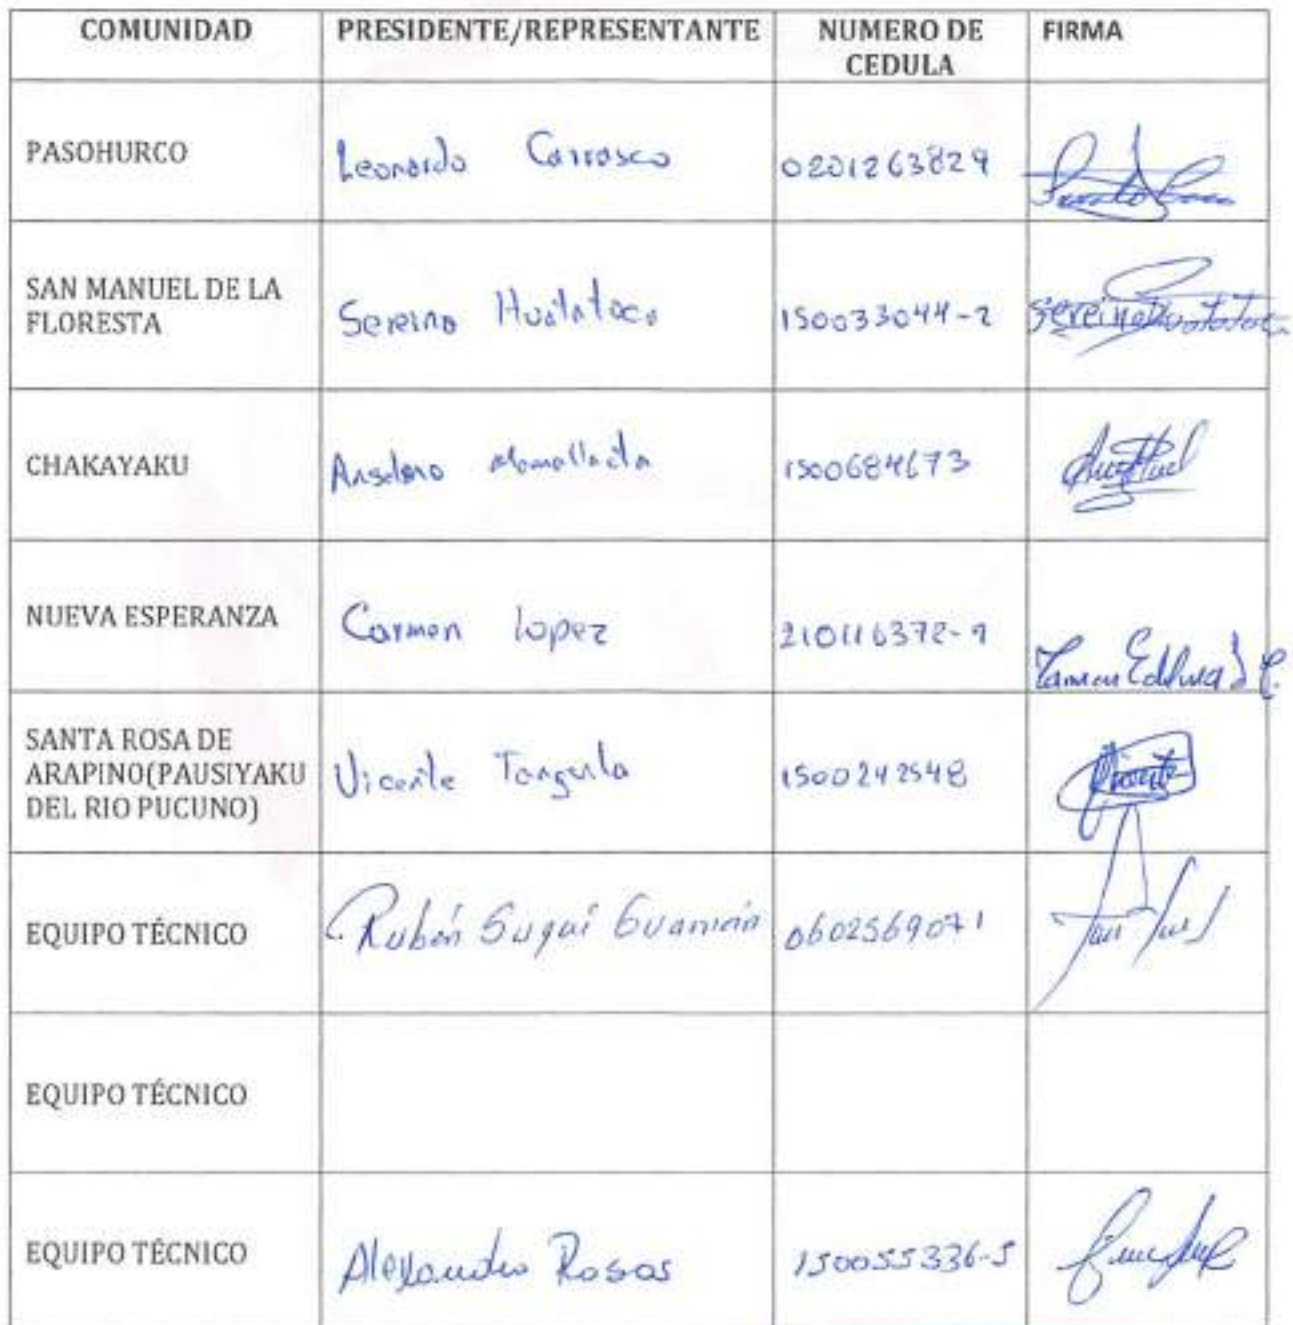 COMUNIDAD PRESIDENTE/REPRESENTANTE NUMERO DE CEDULA FIRMA
PASOHURCO Leonardo Carrasco 0201263829
SAN MANUEL DE LA
FLORESTA Sereino Huatatoca 150033044-2 Sereino Huatatoca
CHAKAYAKU Anselmo Mamallacta 1500684673
NUEVA ESPERANZA Carmen Lopez 210116372-9 Carmen
SANTA ROSA DE
ARAPINO(PAUSIYAKU
DEL RIO PUCUNO) Vicente Tanguila 1500242548 Vicente
EQUIPO TÉCNICO Rubén Suqui Guamán 0602569071
EQUIPO TÉCNICO
EQUIPO TÉCNICO Alexandra Rosas 150055336-5